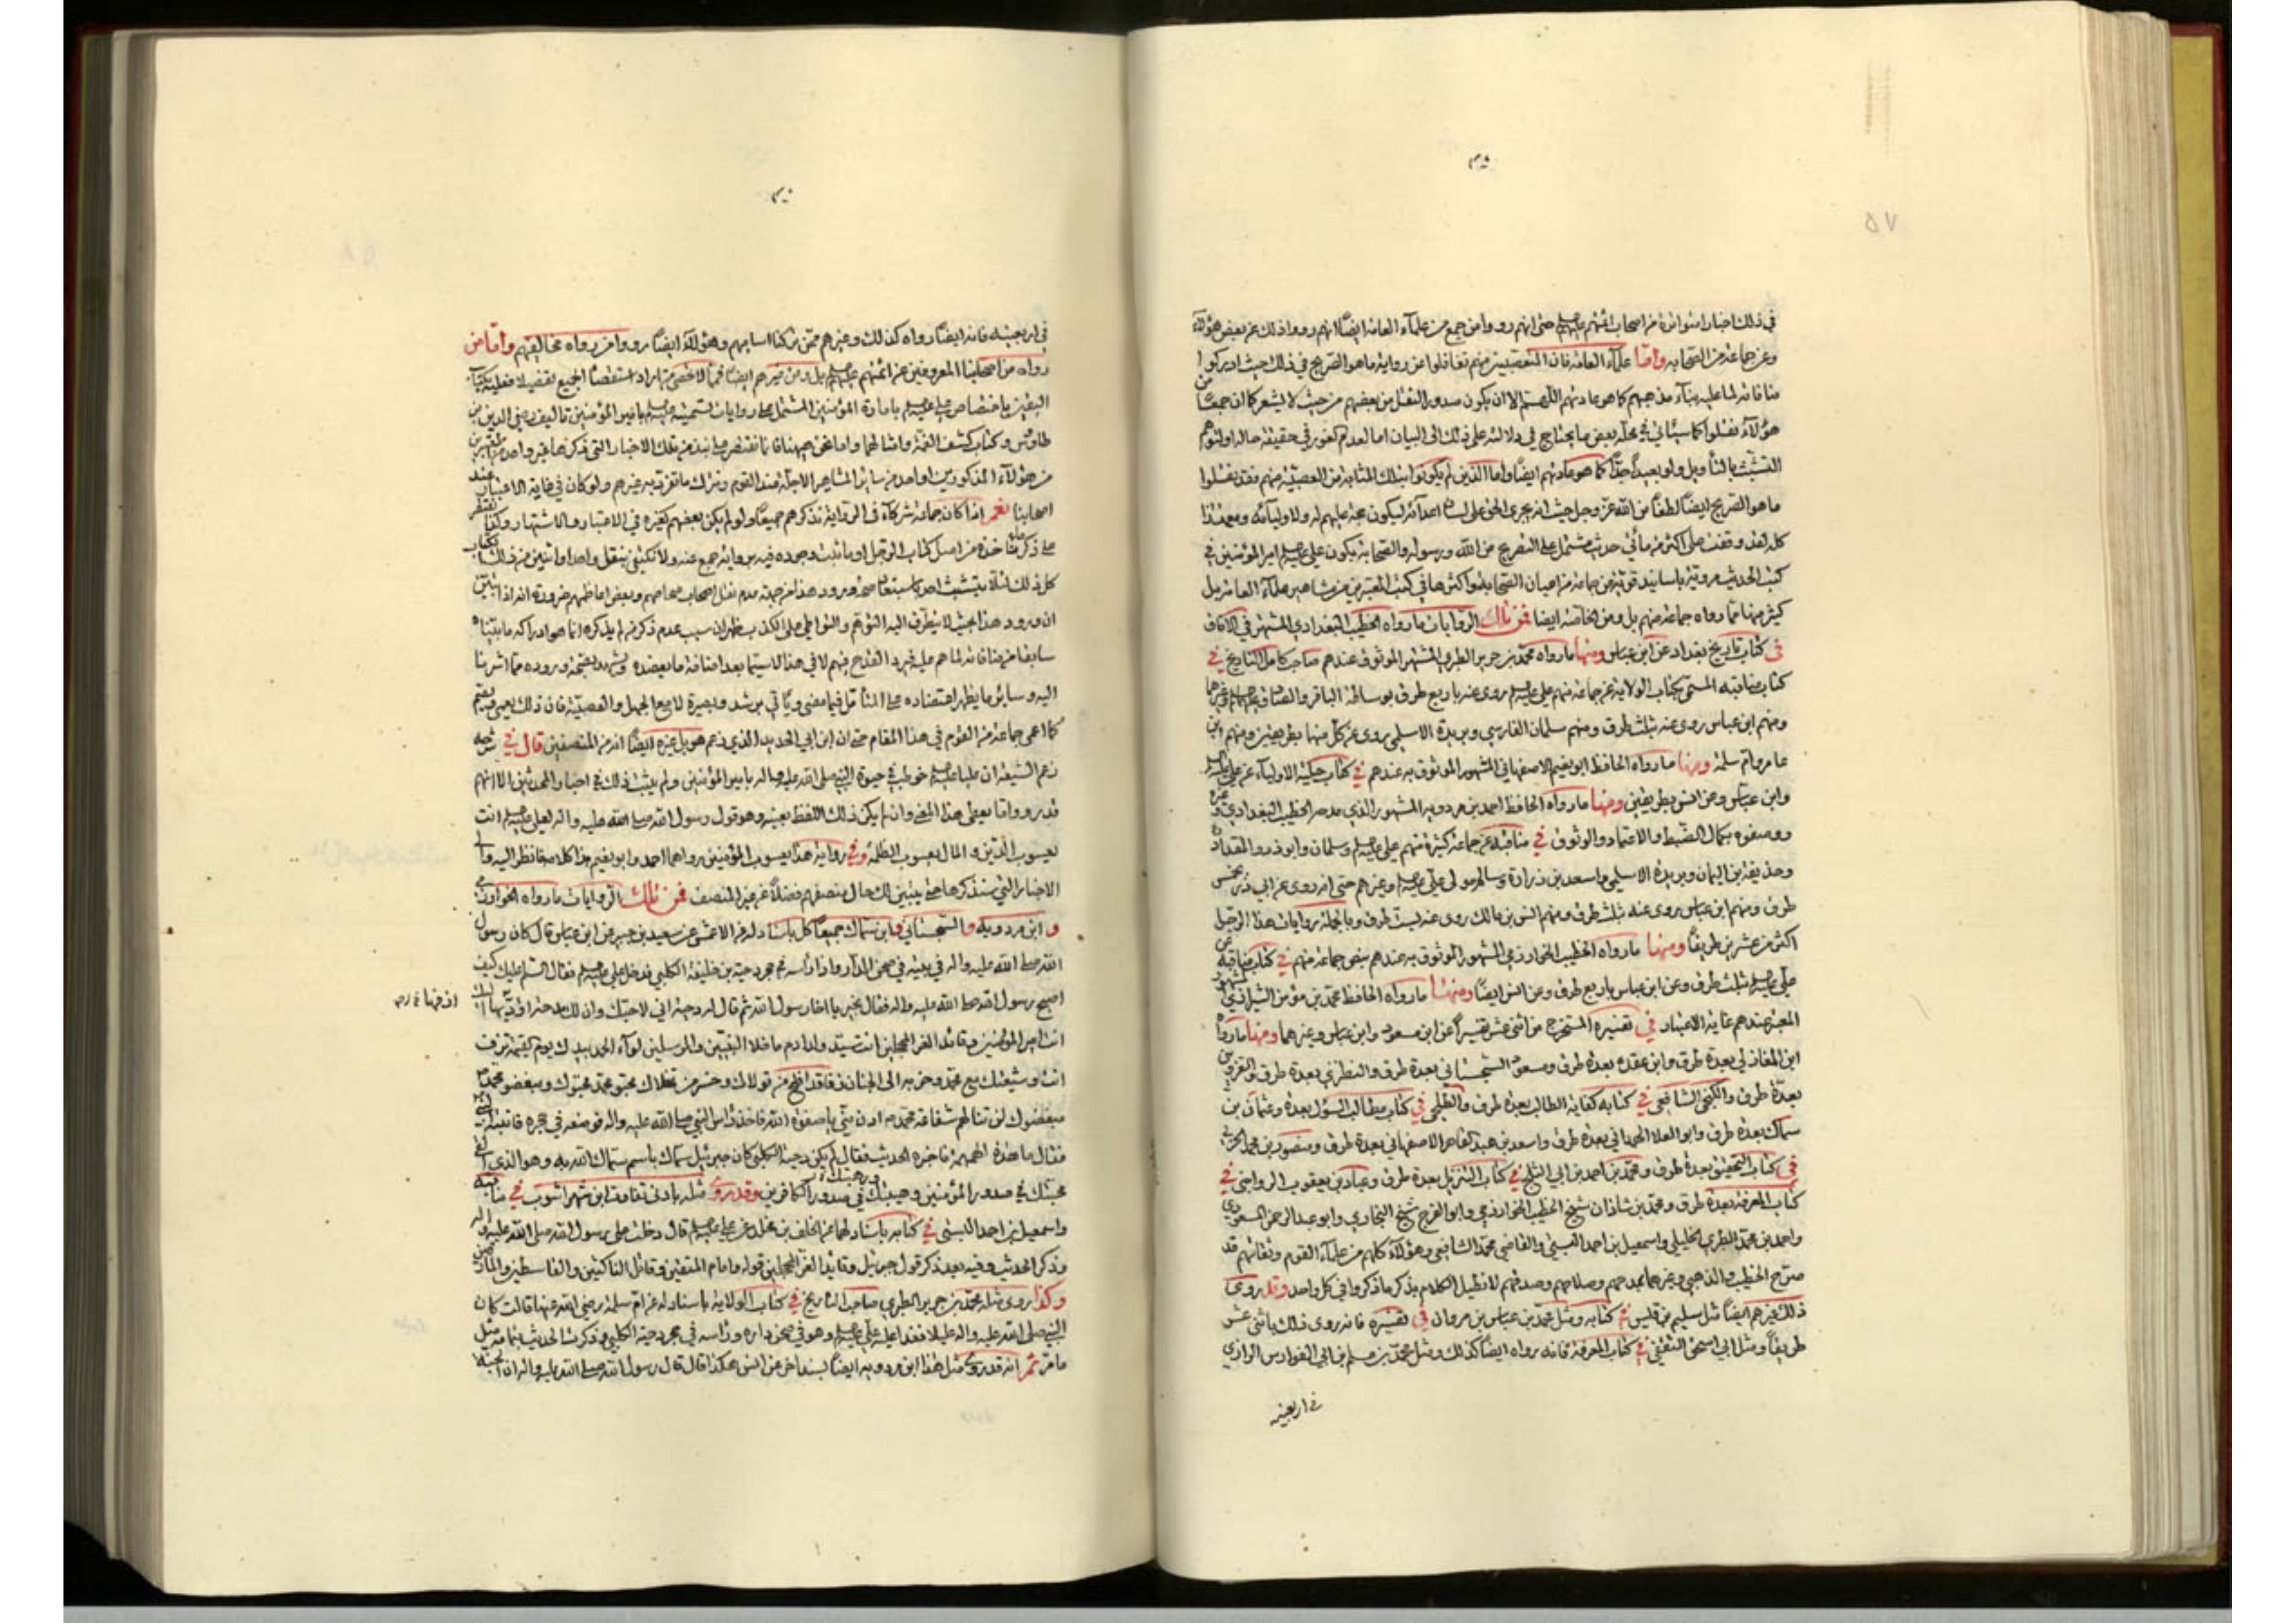 في ذلك اخبارا متواترة من اصحاب ائمتهم عليهم السلم حتى انهم رووا من جمع من علمآء العامة ايضا انهم رووا ذلك عن بعض هؤلآء
وعن جماعة من الصحابه واما علمآء العامة فان المتعصبين منهم تغافلوا عن رواية ما هو الصريح في ذلك حيث ادركوا
منافاته لما عليه بنآء مذهبهم كما هو عادتهم اللهم الا ان يكون صدور النقل من بعضهم من حيث لا يشعر كما ان جمعا من
هؤلآء نقلوا كما سيأتي في محله بعض ما يحتاج في دلالته على ذلك الى البيان اما لعدم في حقيقة حاله او لتوهم
التشبث بالتأويل ولو بعيدا جدا كما هو عادتهم ايضا واما الذين لم يكونوا بتلك المثابة من العصبية منهم فقد نقلوا
ما هو الصريح ايضا لطفا من الله عز وجل حيث انه يجري الحق على لسان اعدآئه ليكون حجة عليهم له ولاوليآئه ومع هذا
كله لقد وقفت على اكثر من مأتي حديث مشتمل على التصريح من الله ورسوله والصحابة بكون علي عليه السلم امير المؤمنين في
كتب الحديث مروية باسانيد قوية عن جماعة من اعيان الصحابة واكثرها في كتب المعتبرين من مشاهير علمآء العامة بل
كثير منها مما رواه جماعة منهم بل ومن الخاصة ايضا فمن تلك الروايات ما رواه الخطيب البغدادي المشتهر في الافاق
في كتاب تاريخ بغداد عن ابن عباس ومنها ما رواه محمد بن جرير الطبري المشتهر الموثوق عندهم صاحب كامل التاريخ في
كتاب مناقبه المسمى بكتاب الولاية عن جماعة منهم علي عليه السلم روى عنه باربع طرق بوساطة الباقر والصادق عليهم السلم وغيرهما
ومنهم ابن عباس روى عنه بثلث طرق ومنهم سلمان الفارسي وبريدة الاسلمي روى عن كل منها بطريقين ومنهم ابن
عامر وام سلمة ومنها ما رواه الحافظ ابو نعيم الاصفهاني المشهور الموثوق به عندهم في كتاب حلية الاوليآء عن علي عليه السلم
وابن عباس وعن انس بطريقين ومنها ما رواه الحافظ احمد بن مردويه المشهور الذي مدحه الخطيب البغدادي وغيره
ووصفوه بكمال الضبط والاعتماد والوثوق في مناقبه عن جماعة كثيرة منهم علي عليه السلم وسلمان وابو ذر والمقداد
وحذيفة بن اليمان وبريدة الاسلمي واسعد بن زرارة وسالم مولى علي عليه السلم وغيرهم حتى انه روى عن ابي ذر بخمس
طرق ومنهم ابن عباس روى عنه بثلث طرق ومنهم انس بن مالك روى عنه بست طرق وبالجملة روايات هذا الرجل
اكثر من عشرين طريقا ومنها ما رواه الخطيب الخوارزمي المشهور الموثوق به عندهم جماعة منهم في كتاب مناقبه عن
علي عليه السلم بثلث طرق وعن ابن عباس باربع طرق وعن انس ايضا ومنها ما رواه الحافظ محمد بن مؤمن الشيرازي المشهور
المعتبر عندهم غاية الاعتبار في تفسيره المستخرج من اثنى عشر تفسيرا عن ابن مسعود وابن عباس وغيرهما ومنها ما رواه
ابن المغازلي بعدة طرق وابن عقده بعدة طرق ومسعود السجستاني بعدة طرق والنطنزي بعدة طرق
بعدة طرق والكنجي الشافعي في كتابه كفاية الطالب بعدة طرق في كتاب مطالب السؤل بعدة وعثمان بن
سماك بعدة طرق وابو العلا الهمداني بعدة طرق واسعد بن عبد القاهر الاصفهاني بعدة طرق ومنصور بن محمد الحربي
في كتاب التحقيق بعدة طرق ومحمد بن احمد بن ابي الثلج في كتاب التنزيل بعدة طرق وعباد بن يعقوب الرواجني في
كتاب المعرفة بعدة طرق ومحمد بن شاذان شيخ الخطيب الخوارزمي وابو الفرج شيخ البخاري وابو عبد الرحمن المسعودي
واحمد بن محمد الطبري الخليلي واسمعيل بن احمد البستي والقاضي محمد الشافعي وهؤلآء كلهم من علمآء القوم وثقاتهم قد
صرح الخطيب والذهبي وغيرهما بمدحهم وصلاحهم وصدقهم لا نطيل الكلام بذكر ما ذكروا في كل واحد وقد روى
ذلك غيرهم ايضا مثل سليم بن قيس في كتابه ومثل محمد بن عباس بن مروان في تفسيره فانه روى ذلك باثنى عشر
طريقا ومثل ابي اسحق الثقفي في كتاب المعرفة فانه رواه ايضا كذلك ومثل محمد بن مسلم بن ابي الفوارس الرازي
في اربعينه
في اربعينه فانه ايضا رواه كذلك وغيرهم ممن تركنا اساميهم وهؤلآء ايضا رووا عن رواه مخالفيهم واما من
رواه من اصحابنا المعروفين عن ائمتهم عليهم السلم بل ومن غيرهم ايضا فمما لا تحصى من اراد استقصآء الجميع تفصيلا فعليه بكتاب
اليقين باختصاص علي عليه السلم بامارة المؤمنين المشتمل على روايات تسميته عليه السلم بامير المؤمنين تأليف رضي الدين بن
طاوس وكتاب كشف الغمة وامثالهما واما نحن ههنا فانا نقتصر على نبذ من تلك الاخبار التي ذكرها غير واحد من
من هؤلآء المذكورين او احد من سائر المشاهير الاجلة عند القوم ونترك ما تفرد به غيرهم ولو كان في غاية الاعتبار عند
اصحابنا نعم اذا كان جماعة شركآء في الرواية نذكرهم جميعا ولو لم يكن بعضهم كغيره في الاعتبار والاشتهار
على ذكر ما خذه من اصل كتاب الرجل او ما ثبت وجوده فيه برواية جمع عنه ولا نكتفي بنقل واحد او اثنين من ذلك الكتاب
كل ذلك لئلا يتشبث احد باستبعاد صحة ورود هذا من جهة عدم نقل اصحاب صحاحهم وبعض اعاظمهم ضرورة انه اذا تبين
ان ورود هذا بحيث لا يتطرق اليه التوهم والتواطي على الكذب يظهر ان سبب عدم ذكر من لم يذكره انما هو ادراكه ما بيناه
سابقا من منافاته لما هم عليه فيجرد القدح فيهم لا في هذا لاسيما بعد اضافة ما يعضده ويشهد بصحة وروده مما اشرنا
اليه وسائر ما يظهر اعتضاده على المتأمل فيما مضى ويأتي برشد وبصيرة لا مع الجهل والعصبية فان ذلك يعمي ويصم
كما اعمى جماعة من القوم في هذا المقام حتى ان ابن ابي الحديد الذي زعم هو بل غيره ايضا انه من المنصفين قال في شرحه
زعم الشيعة ان عليا عليه السلم خوطب في حيوة النبي صلى الله عليه واله بامير المؤمنين ولم يثبت ذلك في اخبار المحدثين الا انهم
قد رووا ما يعطى هذا المعنى وان لم يكن ذلك اللفظ بعينه وهو قول رسول الله صلى الله عليه واله لعلي عليه السلم انت
يعسوب الدين والمال يعسوب الظلمة وفي رواية هذا يعسوب المؤمنين رواهما احمد وابو نعيم هذا كلامه فانظر اليه والى
الاخبار التي سنذكرها حتى يتبين لك حال منصفهم فضلا عن غير المنصف فمن تلك الروايات ما رواه الخوارزمي
و ابن مردويه والسجستاني وابن سماك جميعا كل باسناد له عن الاعمش عن سعيد بن جبير عن ابن عباس قال كان رسول
الله صلى الله عليه واله في بيته في صحن الدار واذا رأسه في حجر دحية بن خليفة الكلبي فدخل علي عليه السلم فقال السلم عليك كيف
اصبح رسول الله صلى الله عليه واله فقال بخير يا اخا رسول الله ثم قال له دحية اني لاحبك وان لك مدحة ازفها اليك
انت امير المؤمنين وقائد الغر المحجلين انت سيد ولد ادم ما خلا النبيين والمرسلين لوآء الحمد بيدك يوم القيمة تزف
انت وشيعتك مع محمد وحزبه الى الجنان زفا قد افلح من تولاك وخسر من تخلاك محبو محمد محبوك ومبغضو محمد
مبغضوك لن تنالهم شفاعة محمد ص ادن مني يا صفوة الله فاخذ رأس النبي صلى الله عليه واله فوضعه في حجره فانتبه النبي
فقال ما هذه الهمهمة فاخبره الحديث فقال لم يكن دحية الكلبي كان جبرئيل سماك باسم سماك الله به وهو الذي القى
محبتك في صدور المؤمنين ورهبتك في صدور الكافرين وقد روى مثله بادنى تفاوت ابن شهر اشوب في مناقبه
واسمعيل بن احمد البستي في كتابه باسناد لهما عن الخلف بن مخلد عن علي عليه السلم قال دخلت على رسول الله صلى الله عليه واله
وذكر الحديث وفيه بعد ذكر قول جبرئيل وقايد الغر المحجلين قوله وامام المتقين وقاتل الناكثين والقاسطين والمارقين
وكذا روى مثله محمد بن جرير الطبري صاحب التاريخ في كتاب الولاية باسناد له عن ام سلمة رضي الله عنها قالت كان
النبي صلى الله عليه واله عليلا فغدا عليه علي عليه السلم وهو في صحن داره ورأسه في حجر دحية الكلبي وذكرت الحديث بتمامه مثل
ما مر ثم انه قد روى مثل هذا ابن مردويه ايضا بسند اخر عن انس هكذا قال قال رسول الله صلى الله عليه واله ان الجنة